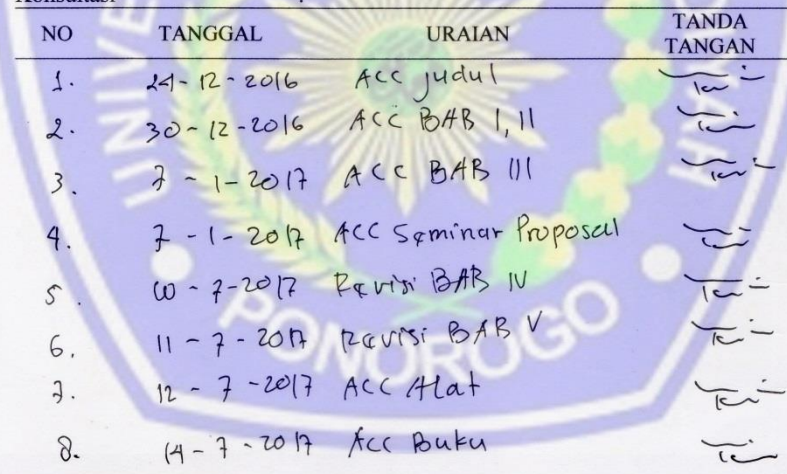 Konsultasi
NO TANGGAL URAIAN TANDA TANGAN
1. 24-12-2016 ACC judul
2. 30-12-2016 ACC BAB I, II
3. 7-1-2017 ACC BAB III
4. 7-1-2017 ACC Seminar Proposal
5 10-7-2017 Revisi BAB IV
6. 11-7-2017 Revisi BAB V
7. 12-7-2017 ACC Alat
8. 14-7-2017 Acc Buku
PONOROGO